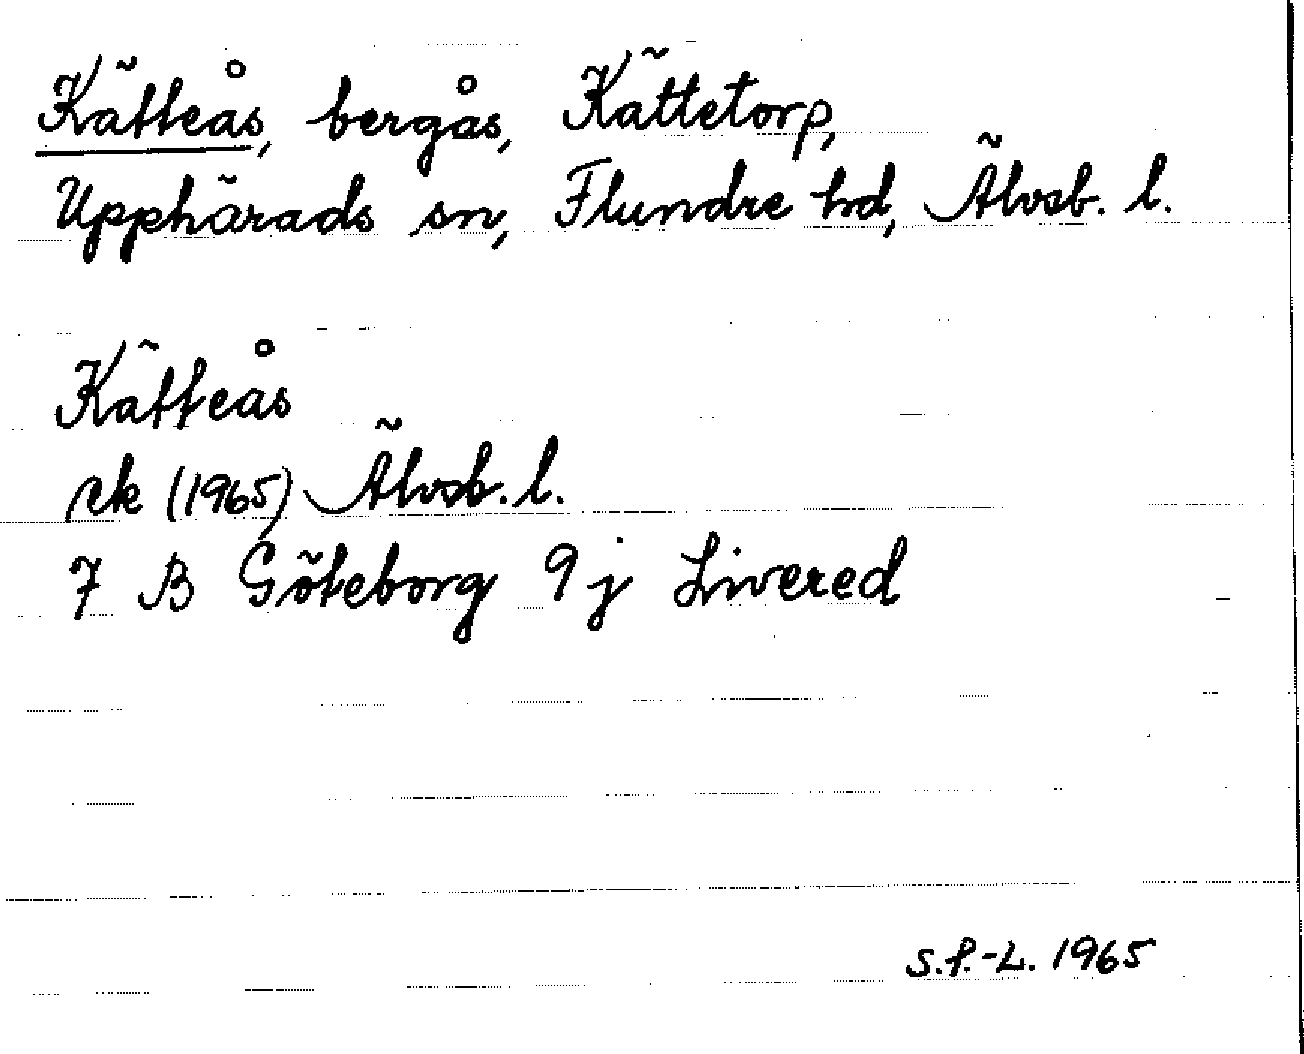 Kätteås, bergås, Kättetorp,
Upphärads sn, Flundre hd, Älvsb. l.
Kätteås
ek (1965) Älvsb. l.
7 B Göteborg 9 j Livered
S.P.-L. 1965